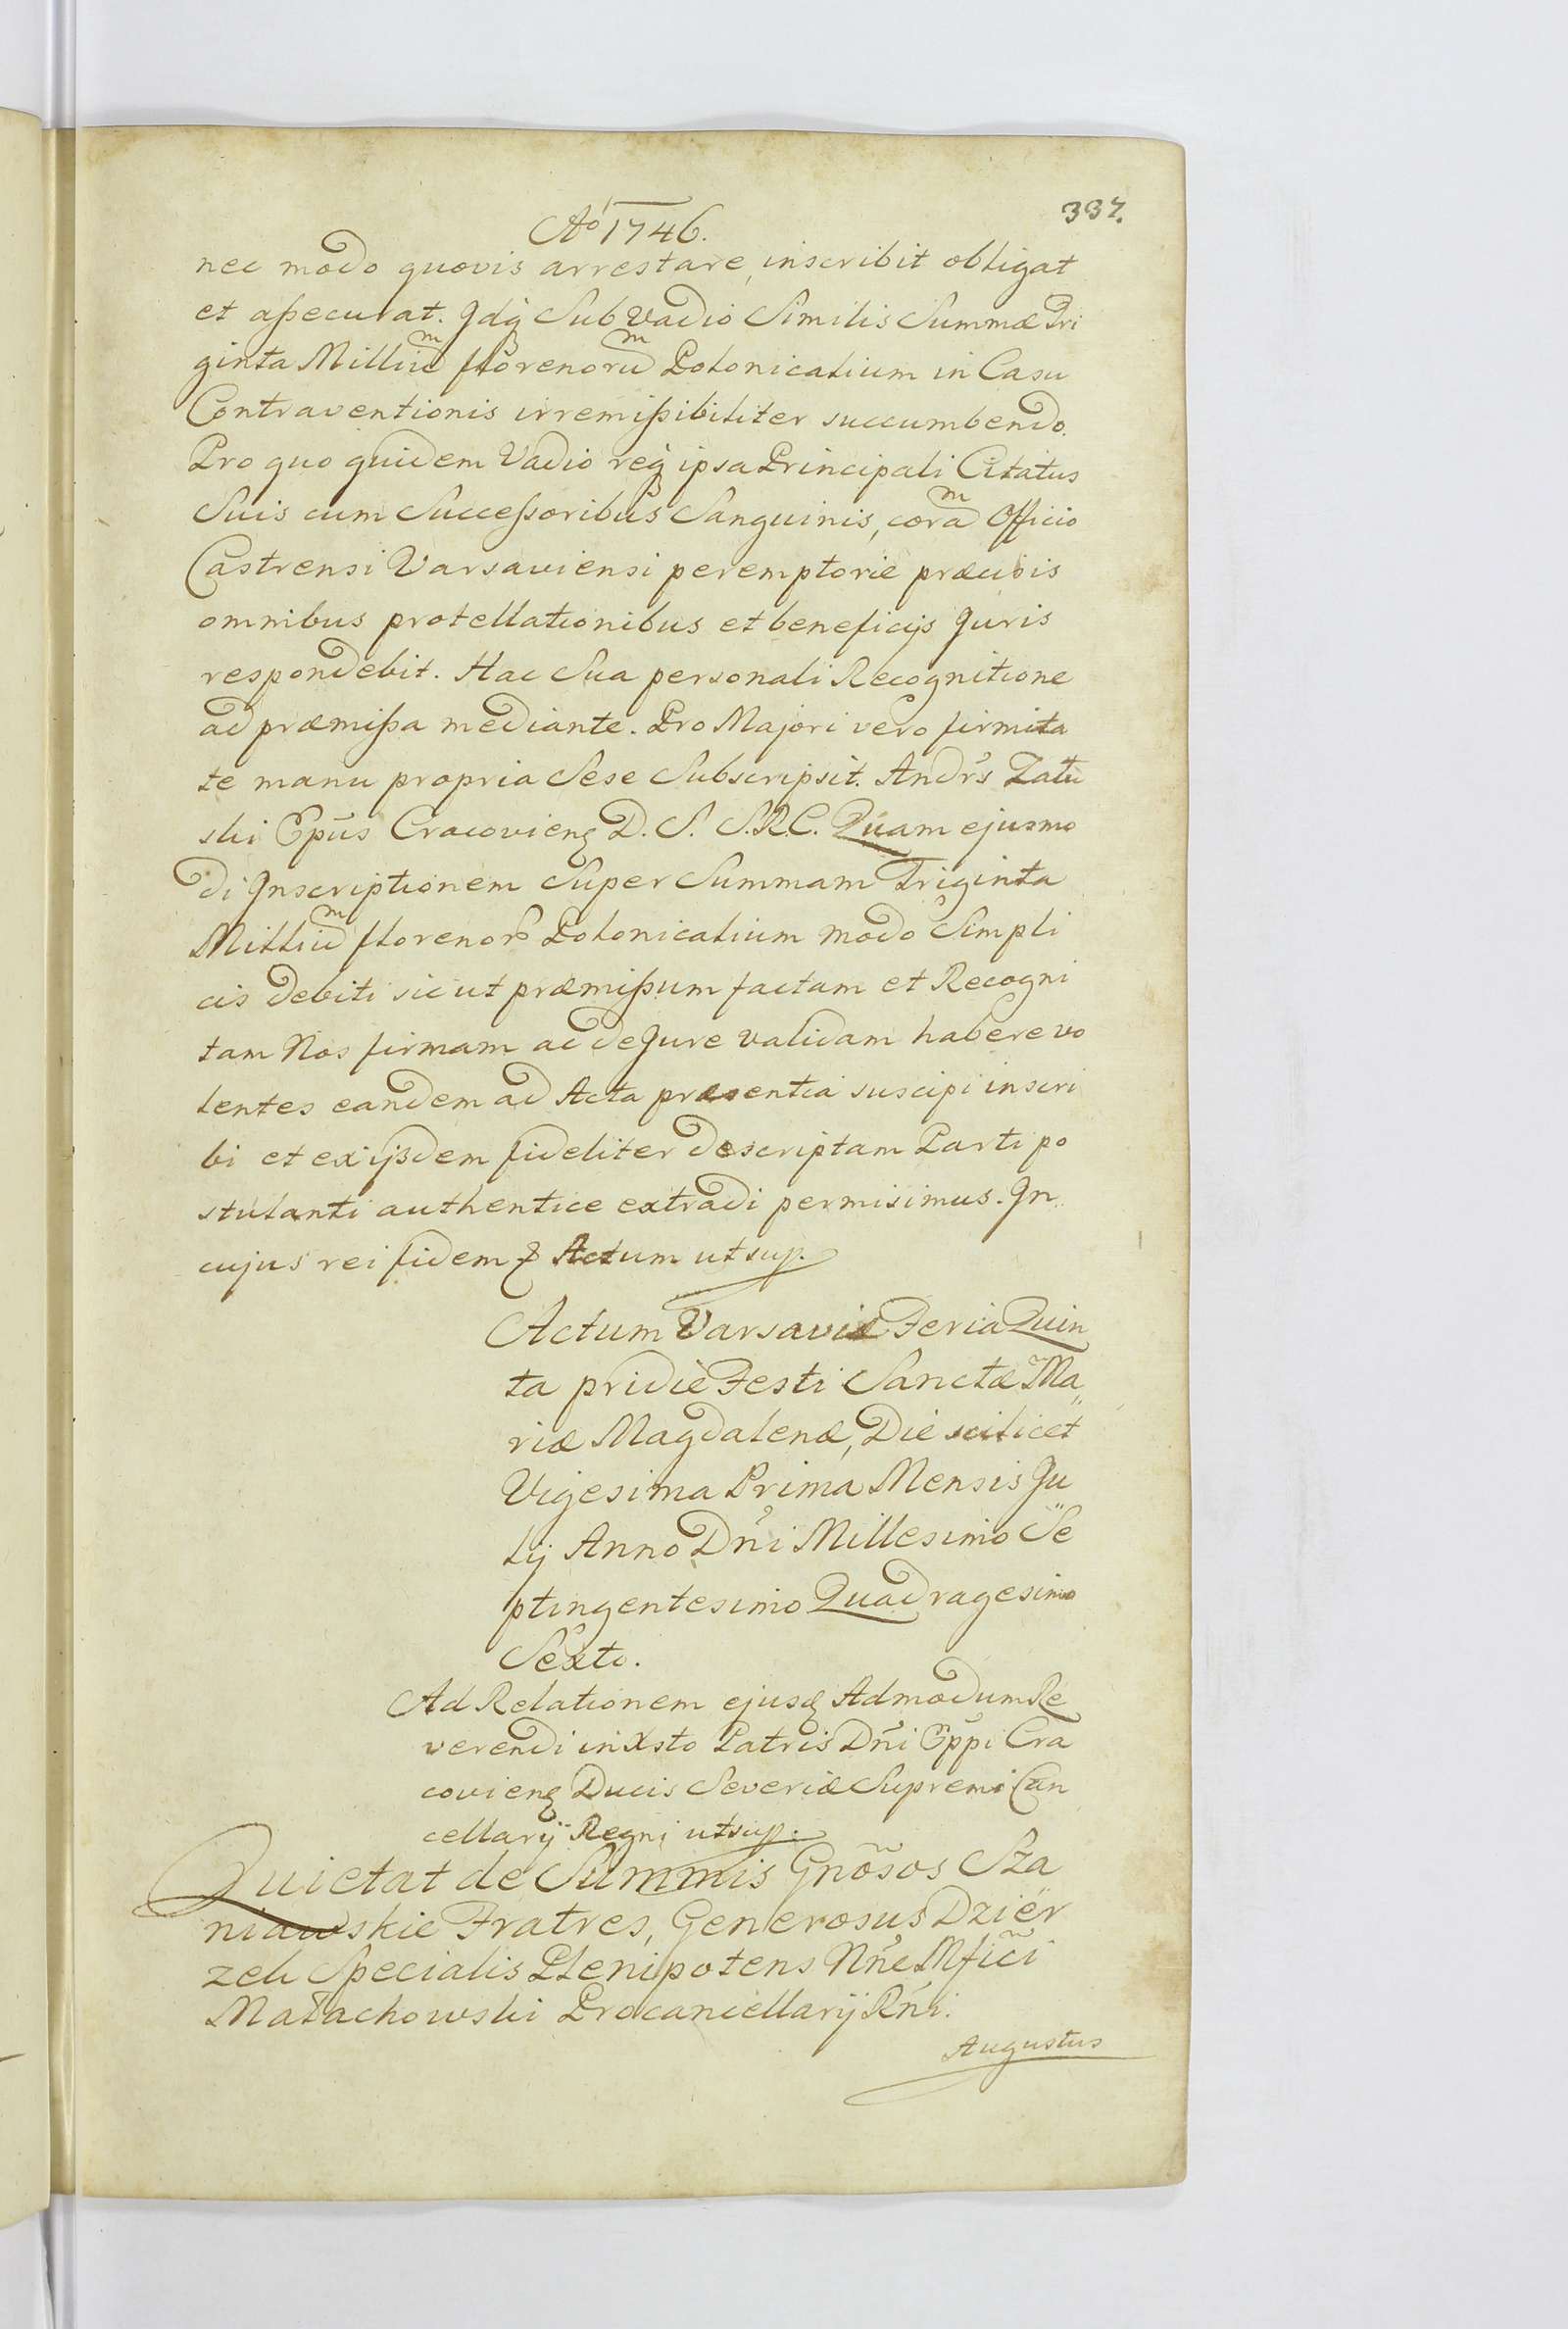 337.
Ao 1746.
nec modo quovis arrestare, inscribit obligat
et aßecurat. Idq Sub Vadio Similis Summæ Tri
ginta Millium florenorum Polonicalium in Casu
Contraventionis irremißibiliter succumbendo.
Pro quo quidem Vadio req ipsa Principali Citatus
Suis cum Succeßoribus Sanguinis, coram Officio
Castrensi Varsaviensi peremptorie præcisis
omnibus protellationibus et beneficijs Juris
respondebit. Hac Sua personali Recognitione
ad præmißa mediante. Pro Majori vero firmita
te manu propria Sese Subscripsit. Andrs Zału
ski Epūs Cracovien D. S. S.R.C. Quam ejusmo
di Inscriptionem Super Summam Triginta
Millium florenor Polonicalium modo Simpli
cis debiti sicut præmißum factam et Recogni
tam Nos firmam ac de Jure validam habere vo
lentes eandem ad Acta præsentia suscipi inscri
bi et ex ijsdem fideliter descriptam Parti po
stulanti authentice extradi permisimus. In
cujus rei fidem & Actum ut sup.
Actum Varsaviæ Feria Quin
ta pridie Festi Sanctæ Ma
riæ Magdalenæ, Die scilicet
Vigesima Prima Mensis Ju
lij Anno Dñi Millesimo Se
ptingentesimo Quadragesimo
Sexto.
Ad Relationem ejusq Admodum Re
verendi in Xsto Patris Dñi Eppi Cra
covien Ducis Severiæ Supremi Can
cellarij Regni ut sup.
Quietat de Summis Gnõsos Sza
niawskie Fratres, Generosus Dzier
zek Specialis Plenipotens Nñe Mfici
Małachowski Procancellarij Rñi.
Augustus